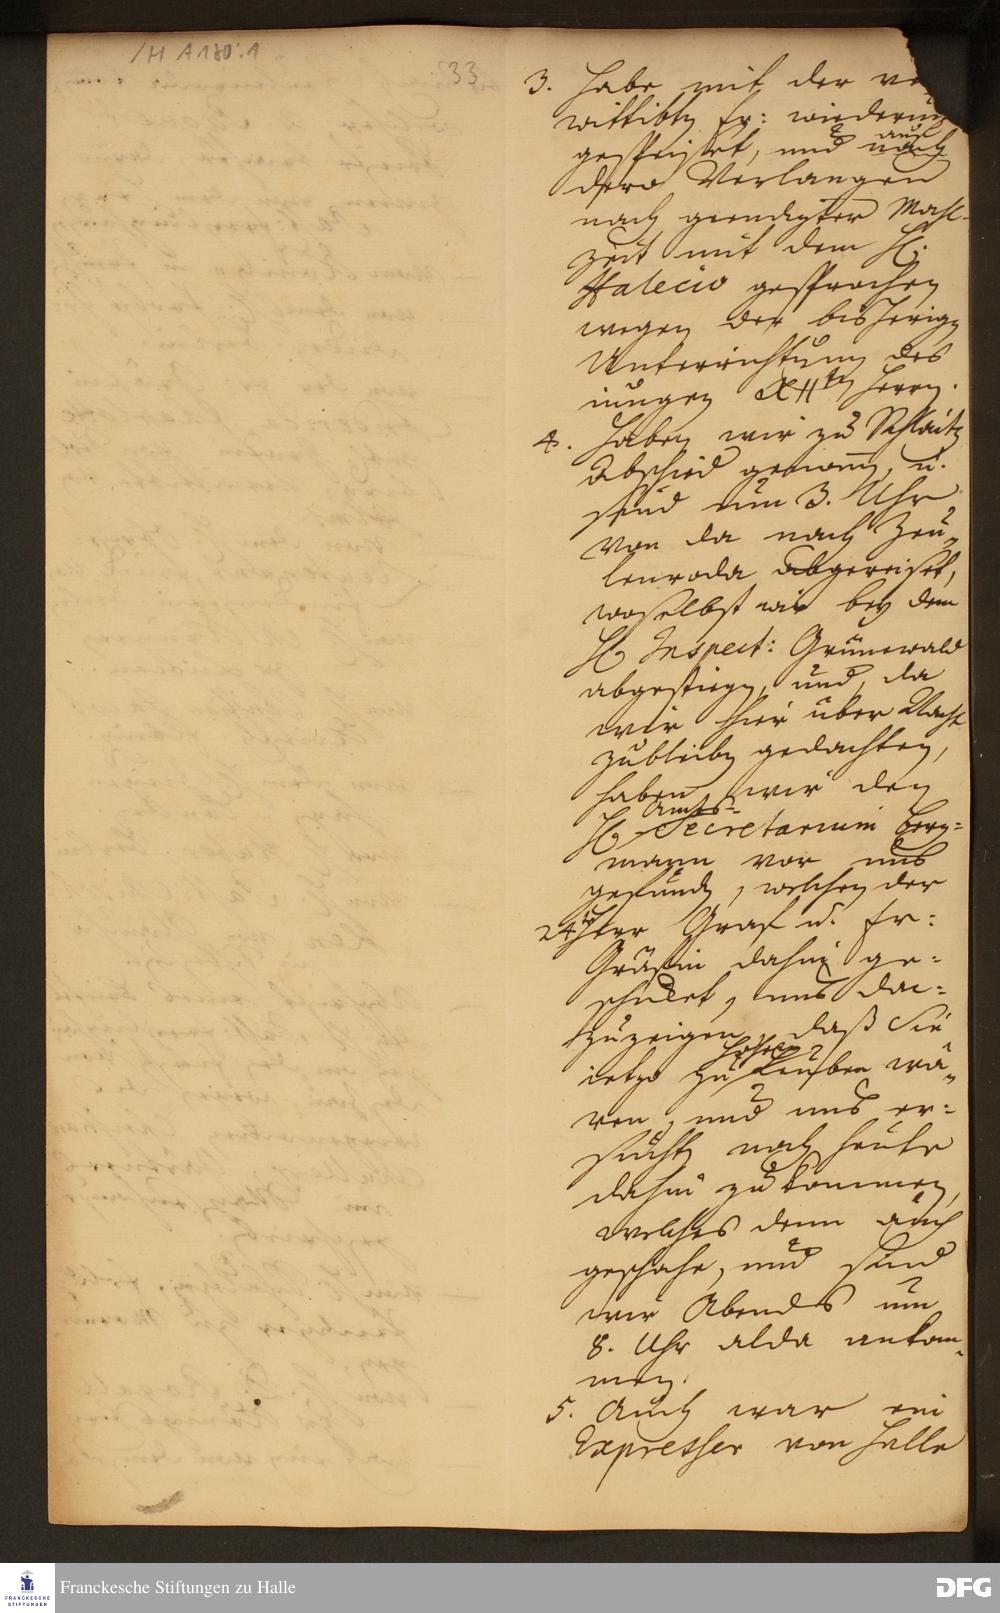 /H A 180:1
33
3. Habe mit der ver
wittibtn Fr: wiederum
gespeiset, und auf
dero Verlangen
nach geendigter Mahl-
zeit mit dem H.
Halecio gesprochen
wegen der bisherign
Unterrichtung des
jungen XIItn Herrn.
4. Haben wir zu Schlaitz
Abschied genomn, u.
sind um 3. Uhr
von da nach Zeu-
lenroda abgereiset,
woselbst wir bey dem
H. Inspect: Grünewald
abgestiegn, und, da
wir hier über Nacht
zubleibn gedachten,
haben wir den
H. Amts-
Secretarium Berg=
mann vor uns
gefundn, welchen der
24te Herr Graf u. Fr:
Gräfin dahin ge=
schicket, uns an=
zuzeigen, daß Sie
ietzo zu Hohen
Leuben wä-
ren, und uns er=
suchtn noch heute
dahin zu kommen,
welches denn auch
geschahe, und sind
wir Abends um
8. Uhr alda ankom-
men.
5. Auch war ein
Expresser von Halle
Franckesche Stiftungen zu Halle
FRANCKESCHE
STIFTUNGEN
DFG